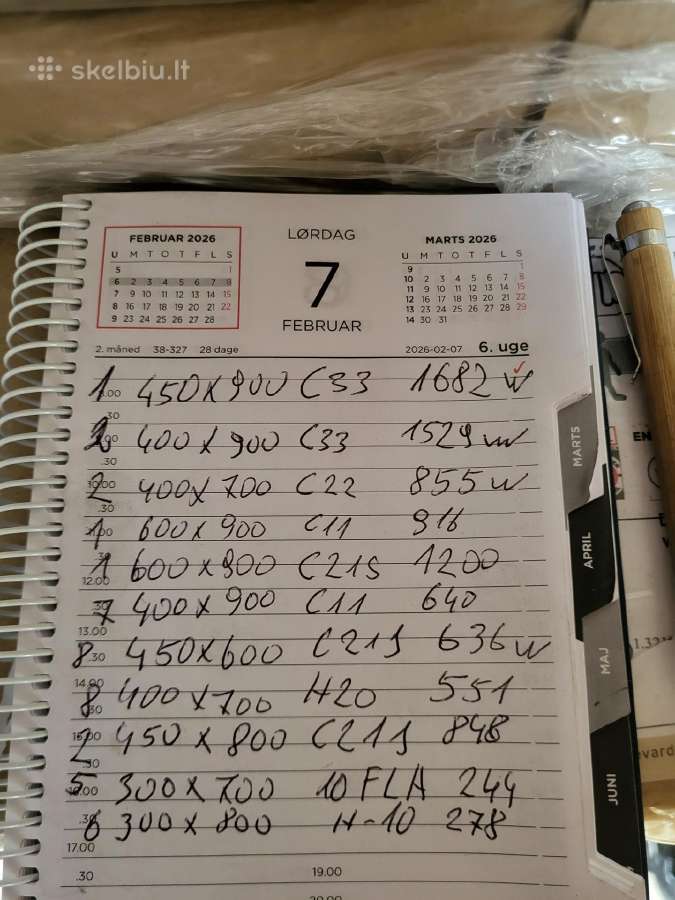 skelbiu.lt
FEBRUAR 2026
U M T O T F L S
5 1
6 2 3 4 5 6 7 8
7 9 10 11 12 13 14 15
8 16 17 18 19 20 21 22
9 23 24 25 26 27 28
LØRDAG
7
FEBRUAR
MARTS 2026
U M T O T F L S
9 1
10 2 3 4 5 6 7 8
11 9 10 11 12 13 14 15
12 16 17 18 19 20 21 22
13 23 24 25 26 27 28 29
14 30 31
2. måned 38-327 28 dage 2026-02-07 6. uge
1 450X900 C33 1682 w
2 400X900 C33 1529 w
2 400X700 C22 855 w
1 600X900 C11 916
1 600X900 C21S 1200
7 400X900 C11 640
8 450X600 C21S 636 w
8 400X700 H20 551
2 450X800 C21S 848
5 300X700 10 FLA 244
6 300X800 H-10 278
.30
.30
10.00
.30
12.00
13.00
.30
14.00
.30
.30
.30
17.00
.30
19.00
20.00
MARTS
APRIL
MAJ
JUNI
EN
evard